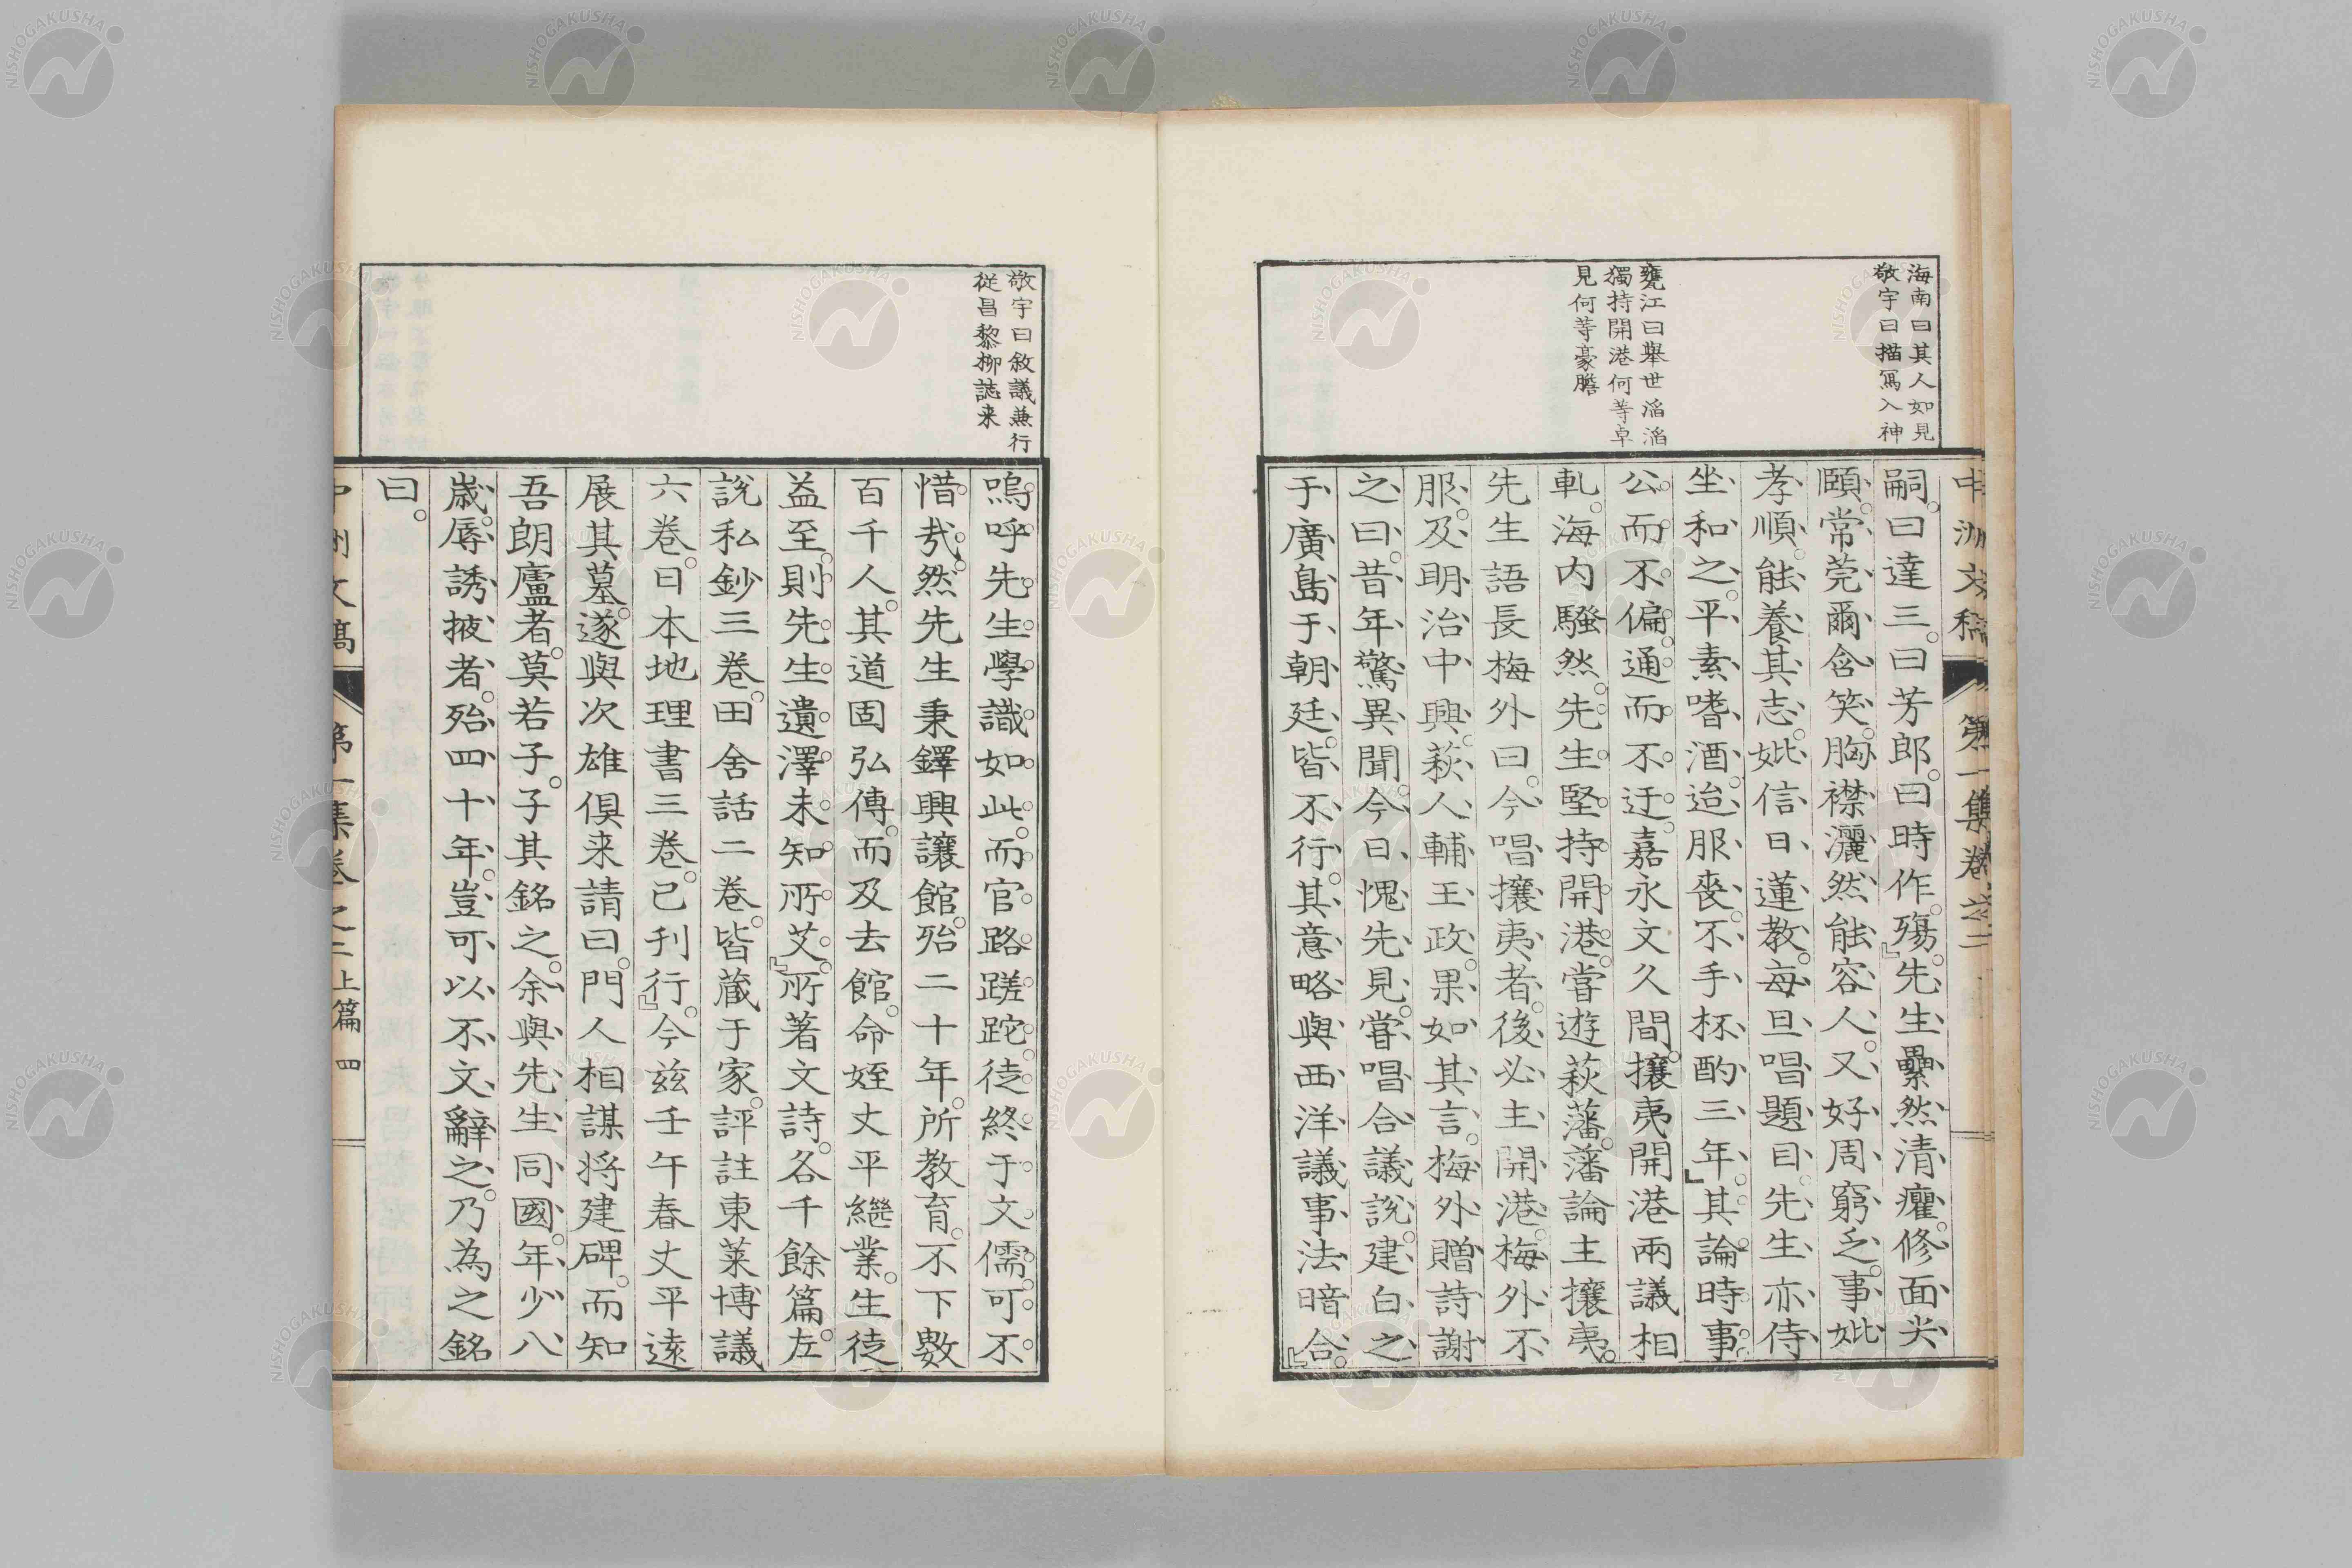 海南曰其人如見
敬宇曰描寫入神
甕江曰舉世滔滔
獨持開港何等卓
見何等豪膽
中洲文稿 第一集卷之二
嗣。曰達三。曰芳郎。曰時作。殤。先生纍然清癯。修面尖
頤。常莞爾含笑。胸襟灑然能容人。又好周窮乏。事妣
孝順。能養其志。妣信日蓮教。每旦唱題目。先生亦侍
坐和之。平素嗜酒。迨服喪。不手杯酌三年。其論時事。
公而不偏。通而不迂。嘉永文久間。攘夷開港兩議相
軋。海内騷然。先生堅持開港。嘗遊萩藩。藩論主攘夷。
先生語長梅外曰。今唱攘夷者。後必主開港。梅外不
服。及明治中興。萩人輔王政。果如其言。梅外贈詩謝
之曰。昔年驚異聞。今日愧先見。嘗唱合議說。建白之
于廣島于朝廷。皆不行。其意略與西洋議事法暗合。
敬宇曰敘議兼行
従昌黎柳誌来
嗚呼先生學識如此。而官路蹉跎。徒終于文儒。可不
惜哉。然先生秉鐸興讓館。殆二十年。所教育。不下數
百千人。其道固弘傳。而及去館。命姪丈平繼業。生徒
益至。則先生遺澤。未知所艾。所著文詩。各千餘篇。左
說私鈔三卷。田舍話二卷。皆蔵于家。評註東萊博議
六卷。日本地理書三卷。已刊行。今茲壬午春丈平遠
展其墓。遂與次雄倶来請曰。門人相謀将建碑。而知
吾朗廬者。莫若子。子其銘之。余與先生同國。年少八
歳。辱誘掖者。殆四十年。豈可以不文辭之。乃為之銘
曰。
中洲文稿 第一集卷之二上篇 四
NISHOGAKUSHA